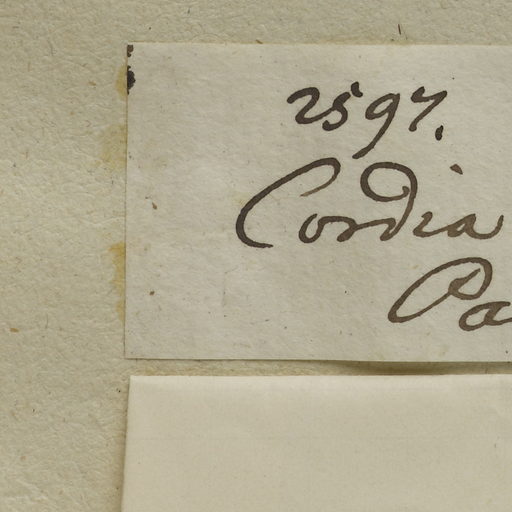 2597.
Cordia
Pa